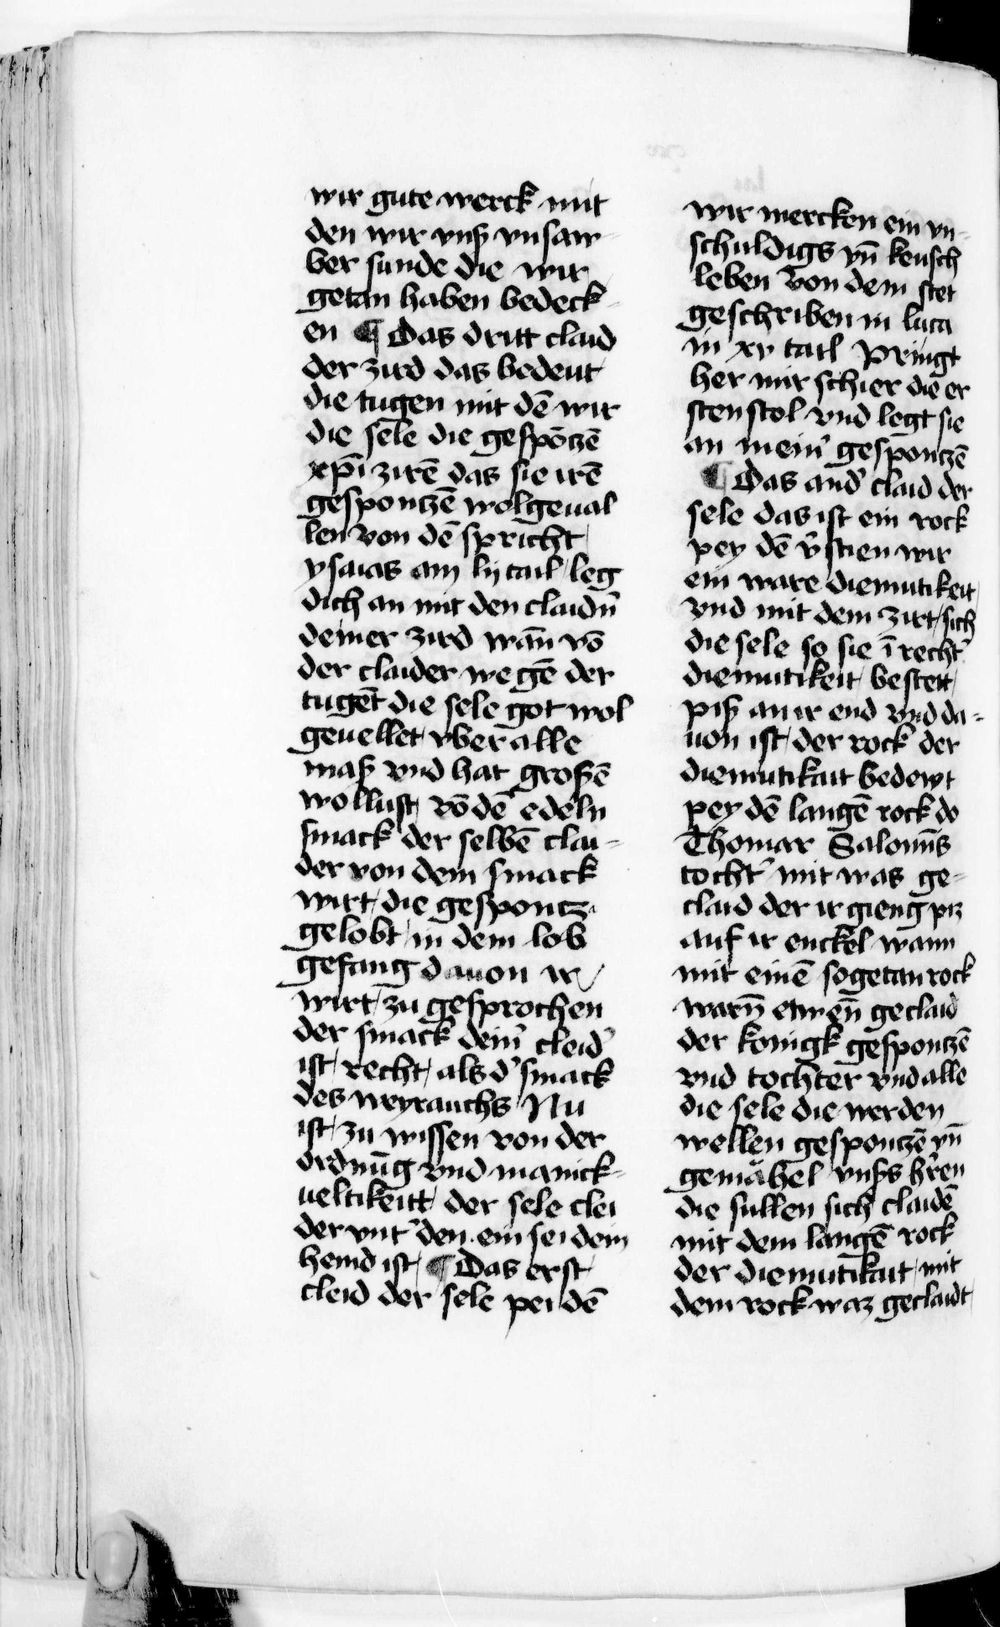 wir gute werck mit
den wir vnß vnsaw
ber sunde die wir
getan haben bedeck
en ¶ Das dritt claid
der zird das bedeut
die tugen mit dē wir
die sele die gespōczē
xp̄i zirē das sie irē
gesponczē wolgeual
len von dē spricht
ysaias am lij tail leg
dich an mit den claidn̄
deiner zird wān vō
der claider wegē der
tugēt die sele got wol
geuellet vber alle
maß vnd hat großē
wollust vō dē edeln
smack der selbē clai-
der von dem smack
wirt die gesponcz
gelobt in dem lob
gesang dauon ir
wirt zu gesprochen
der smack dein̄ cleid'
ist recht als d' smack
des weyrauchs Nu
ist zu wissen von der
ordnūg vnd manick-
ueltikeitt der sele clei
der vnt' den ein sei dem
hemd ist ¶ Das erst
cleid der sele pei dē
wir mercken ein vn-
schuldigs vn̄ keusch
leben von dem stet
geschriben in luca
in xv tail Pringt
her mir schier die er
sten stol vnd legt sie
an mein' gesponczē
¶ Das and' claid der
sele das ist ein rock
pey dē v'stien wir
ein ware diemutikeit
vnd mit dem zirt sich
die sele so sie ī recht'
diemutikeit besteit
piß an ir end vnd da-
uon ist der rock der
diemutikait bedewt
pey dē langē rock do
Thomar Salomn̄s
tocht' mit was ge-
claid der ir gieng piz
auf ir enckel wann
mit einē sogetan rock
warn̄ etwen̄ geclaid
der konigk gesponczē
vnd tochter vnd alle
die sele die werden
wellen gesponczē vn̄
gemahel vnßs h'ren
die sullen sich claidē
mit dem langē rock
der diemutikait mit
dem rock waz geclaidt